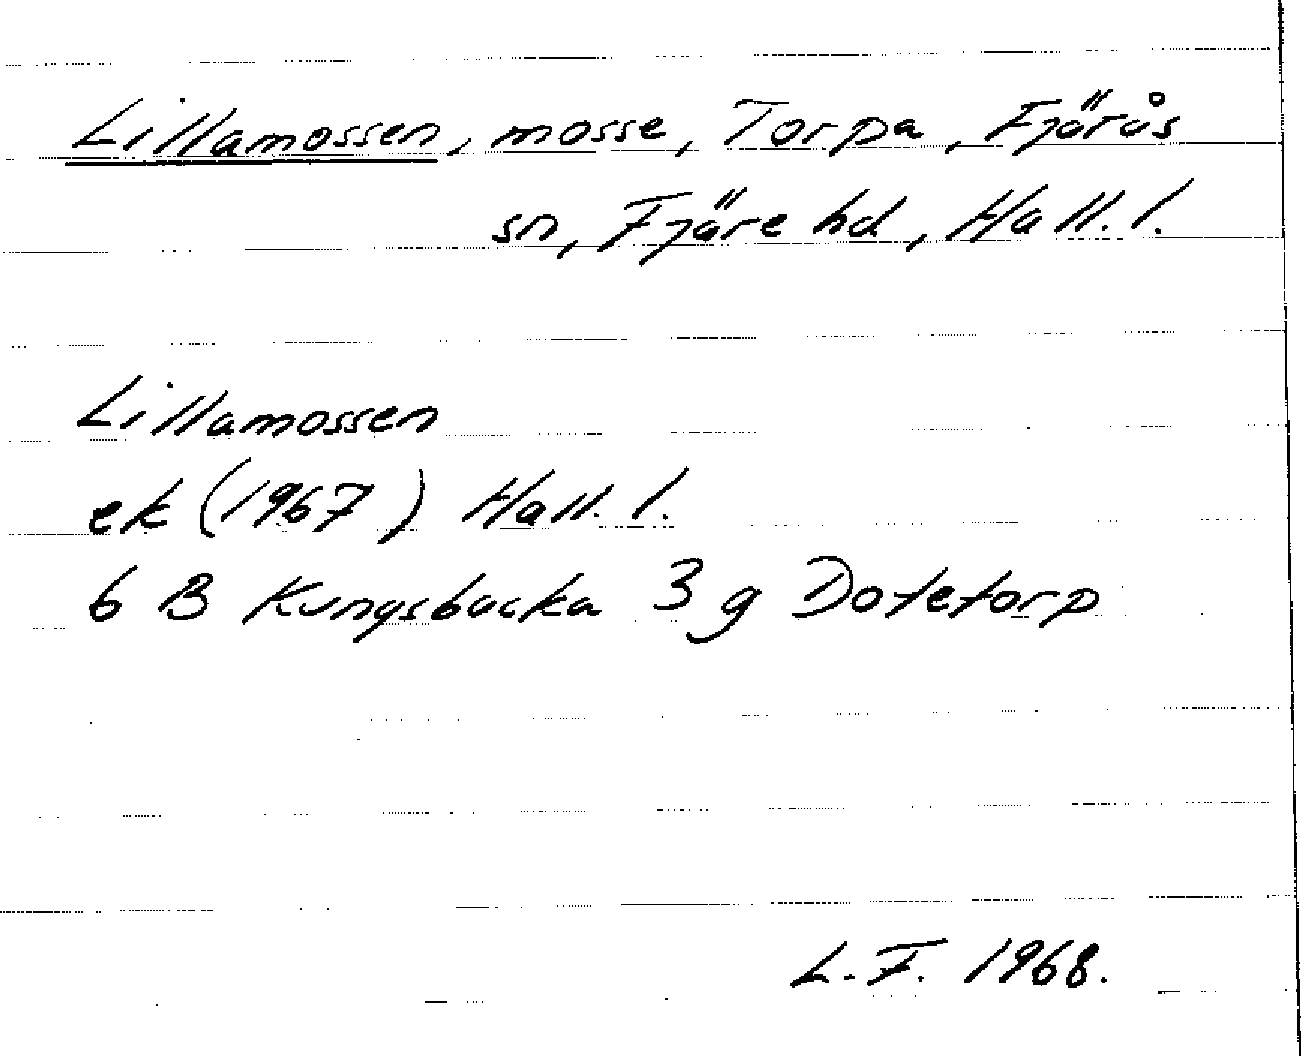 Lillamossen, mosse, Torpa, Fjärås
sn, Fjäre hd, Hall. l.
Lillamossen
ek (1967) Hall. l.
6 B Kungsbacka 3 g Dotetorp
L.F. 1968.